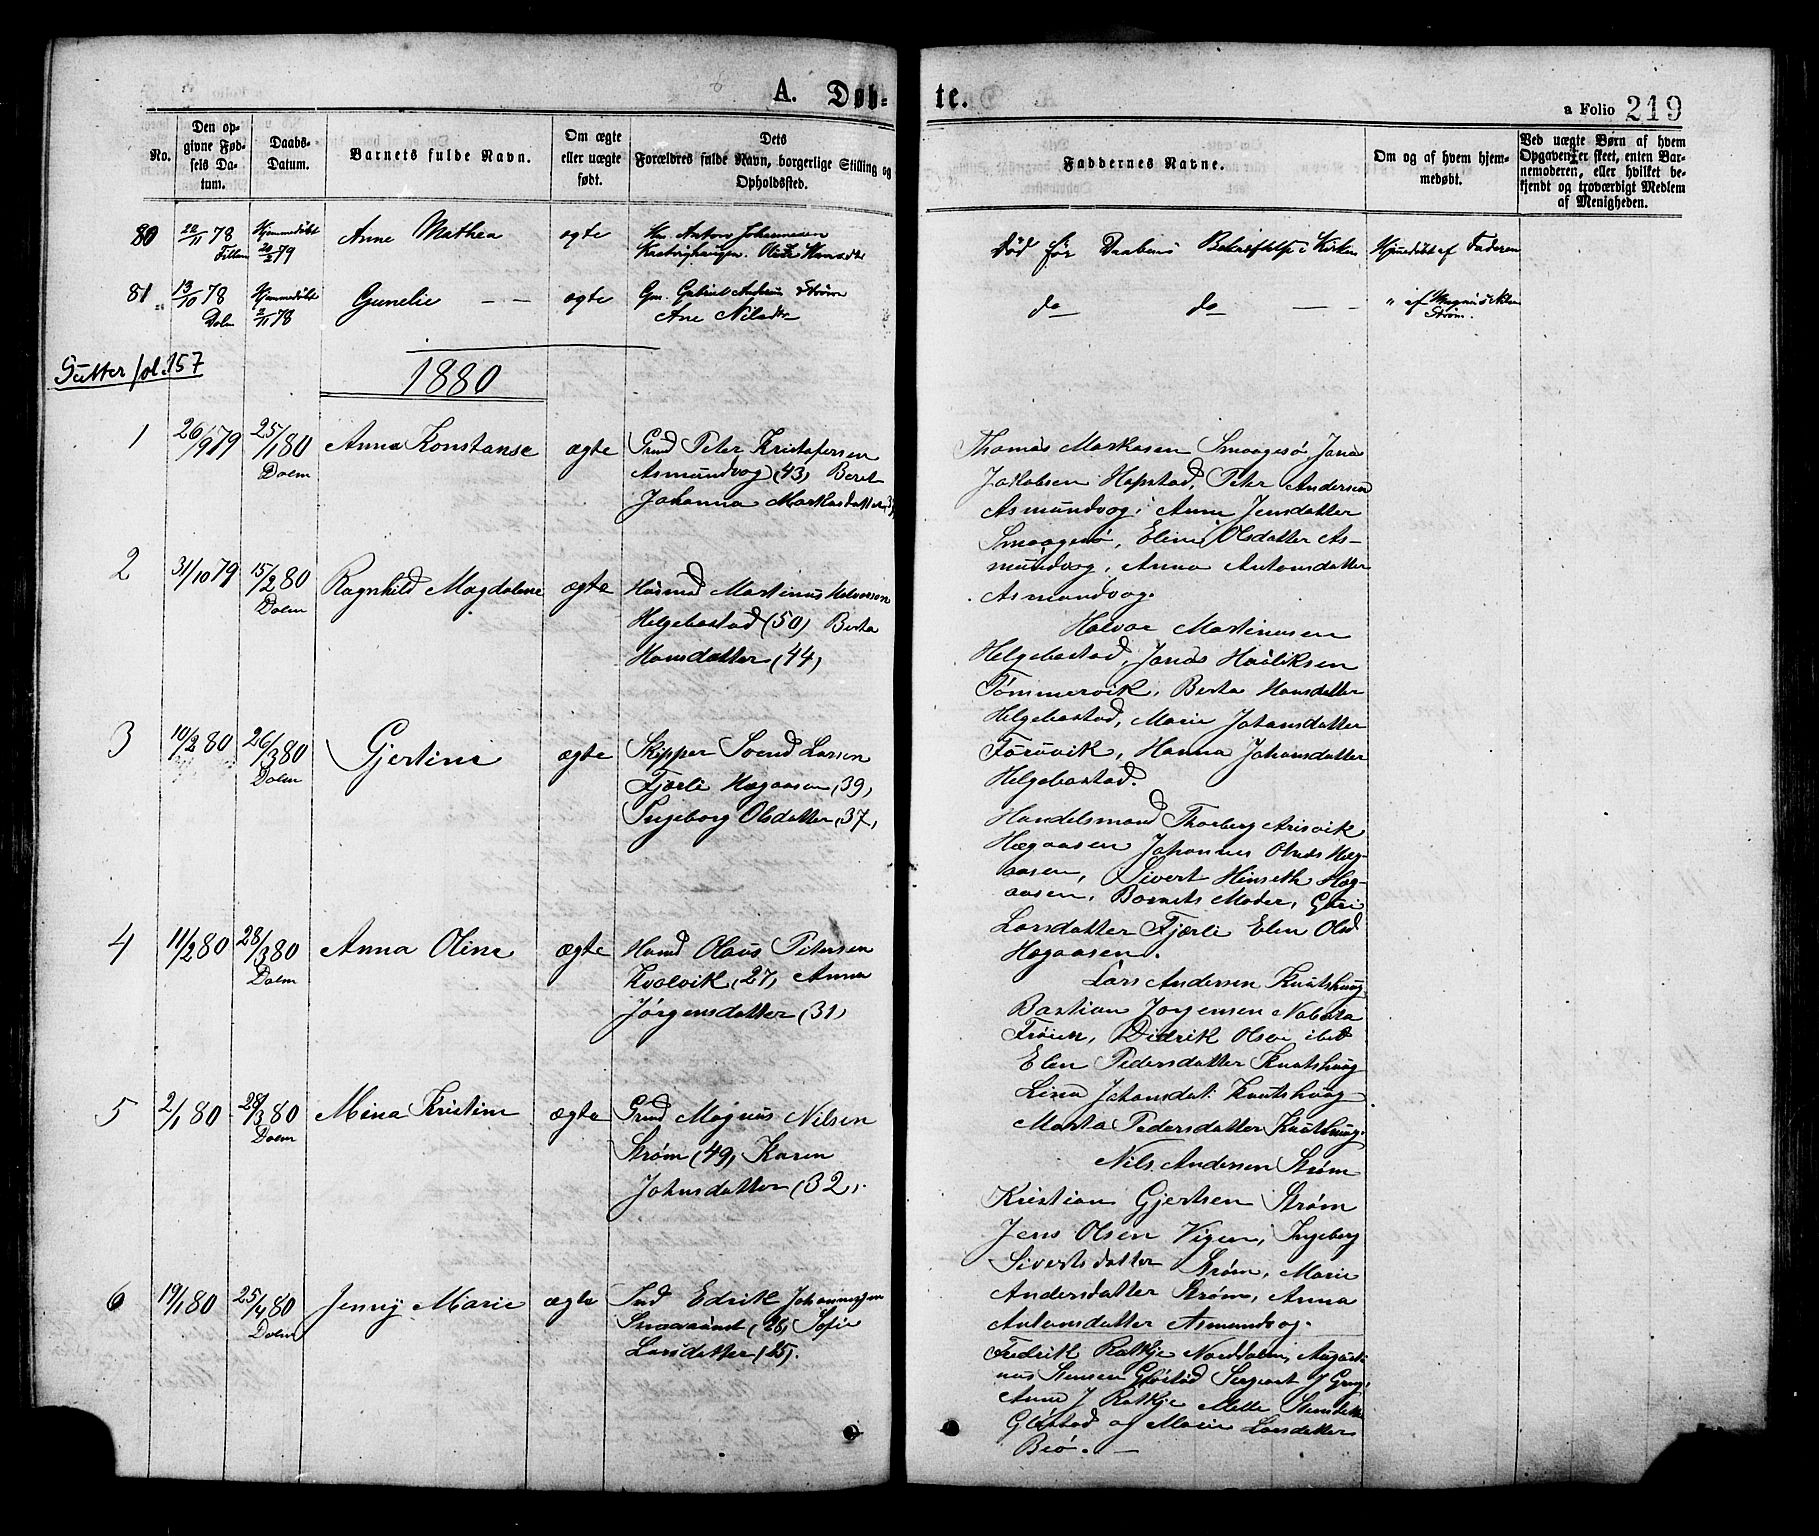 A. Døb-
te.
a Folio 219
No.
Den op-
givne Fød-
sels Da-
tum.
Daabs-
Datum.
Barnets fulde Navn.
Om ægte
eller uægte
født.
Dets
Forældres fulde Navn, borgerlige Stilling og
Opholdssted.
Faddernes Navne.
Om og af hvem hjem-
medøbt.
Ved uægte Børn af hvem
Opgaven er skeet, enten Bar-
nemoderen, eller hvilket be-
kjendt og troværdigt Medlem
af Menigheden.
80 22/11 78 Hjemmedøbt Anne Mathea ægte Anton Johannesen
Fillan 20/2 79
død før Daabens Bekræftelse i Kirken Hjemdøbt af Faderen
81 13/10 78 Hjemmedøbt Gunelie — — ægte Gm. Gabriel Andreas Strøm
Dolm 2/11 78 Ane Nilsdtr
do do — — " af Magnus Nilsen
Strøm.
Sutter fol. 157
1880
1 26/9 79 25/1 80 Anna Konstanse ægte Grmd Peter Kristofersen
Dolm Asmundvog (43) Beret
Johanna Markusdatter
Thomas Markusen Smaagesø, Jonas
Jakobsen Hopstad, Peter Andersen
Asmundvog, Anne Jensdatter
Smaagesø, Eline Olsdatter As-
mundvog, Anna Antonsdatter
Asmundvog.
2 31/10 79 15/2 80 Ragnhild Magdalene ægte Husmd Martinus Halvorsen
Dolm Helgebostad (50) Berta
Hansdatter (44)
Halvor Martinusen
Helgebostad, Jonas
Tømmervik, Berta Hansdatter
Helgebostad, Marie Johansdatter
Hanna Johansdatter
Helgebostad.
3 10/2 80 26/3 80 Gjertine ægte Skipper Svend Larsen
Dolm Fjærli Hægaasen (39)
Ingeborg Olsdatter (37)
Handelsmand Thorberg Arisvik
Hægaasen Johannes Hæg-
aasen, Sivert Hinseth Hæg-
aasen, Barnets Moder, Guri
Larsdatter Fjærli Elen Olsd
Hægaasen.
4 11/2 80 28/3 80 Anna Oline ægte Olaus Petersen
Dolm Kvalvik (27) Anna
Jørgensdatter (31)
Lars Andersen Knutshaug
Bastian Jørgensen Nabeita
Frøien, Didrik Olsen ibd
Elen Pedersdatter Knutshaug
Lina Johansdat. Knutshaug
Marta Pedersdatter Knutshaug.
5 2/1 80 28/3 80 Mina Kristine ægte Grmd Magnus Nilsen
Dolm Strøm (49) Karen
Johnsdatter (32).
Nils Andersen Strøm
Kristian Gjertsen Strøm
Jens Olsen Vigen, Ingeborg
Sivertsdatter Strøm, Marie
Andersdatter Strøm, Anna
Antonsdatter Asmundvog.
6 19/1 80 25/4 80 Jenny Marie ægte Edrik Johannessen
Dolm (26) Sofie
Larsdatter (25).
Fredrik Ratkje Norddolm, August-
nus Stensen Gløstad Sergeant J Grug,
Anne J Ratkje Mette Stensdatter
Gløstad og Marie Larsdatter
Beø. —